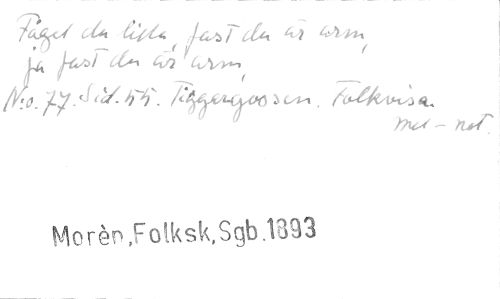 Fåget du lilla, fast du är arm,
ja fast du är arm,
N:o. 77. Sid. 55. Tiggargossen. Folkvisa.
mel - not.
Morèn,Folksk,Sgb.1893